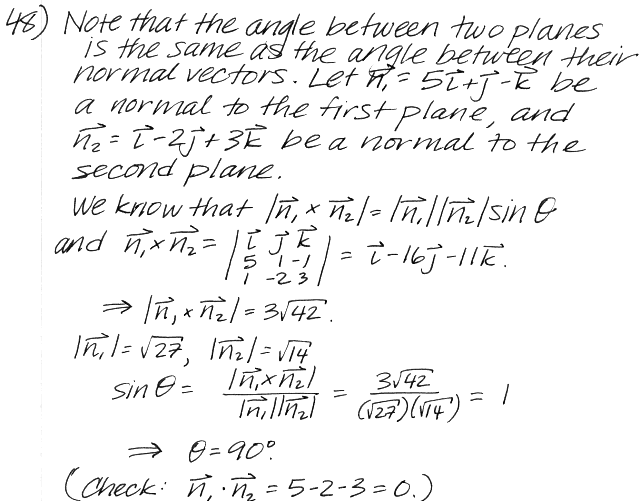 48) Note that the angle between two planes
is the same as the angle between their
normal vectors. Let n⃗₁ = 5i⃗+j⃗-k⃗ be
a normal to the first plane, and
n⃗₂ = i⃗-2j⃗+3k⃗ be a normal to the
second plane.
We know that |n⃗₁ × n⃗₂| = |n⃗₁||n⃗₂|sin θ
and n⃗₁×n⃗₂ = | i⃗ j⃗ k⃗ ; 5 1 -1 ; 1 -2 3 | = i⃗-16j⃗-11k⃗.
⇒ |n⃗₁×n⃗₂| = 3√42.
|n⃗₁| = √27, |n⃗₂| = √14
sin θ = |n⃗₁×n⃗₂| / |n⃗₁||n⃗₂| = 3√42 / (√27)(√14) = 1
⇒ θ = 90°.
(Check: n⃗₁·n⃗₂ = 5-2-3 = 0.)